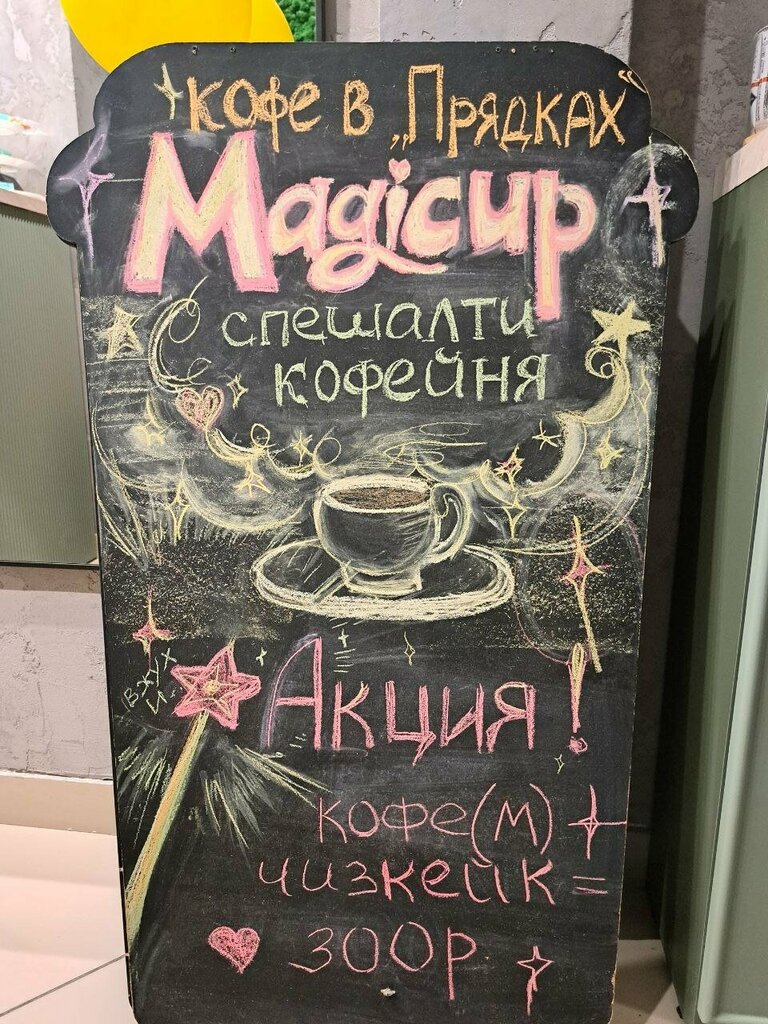 кофе в „Прядках“
Magicup
спешалти
кофейня
вжух
и.
Акция!
кофе(м) +
чизкейк =
300р.